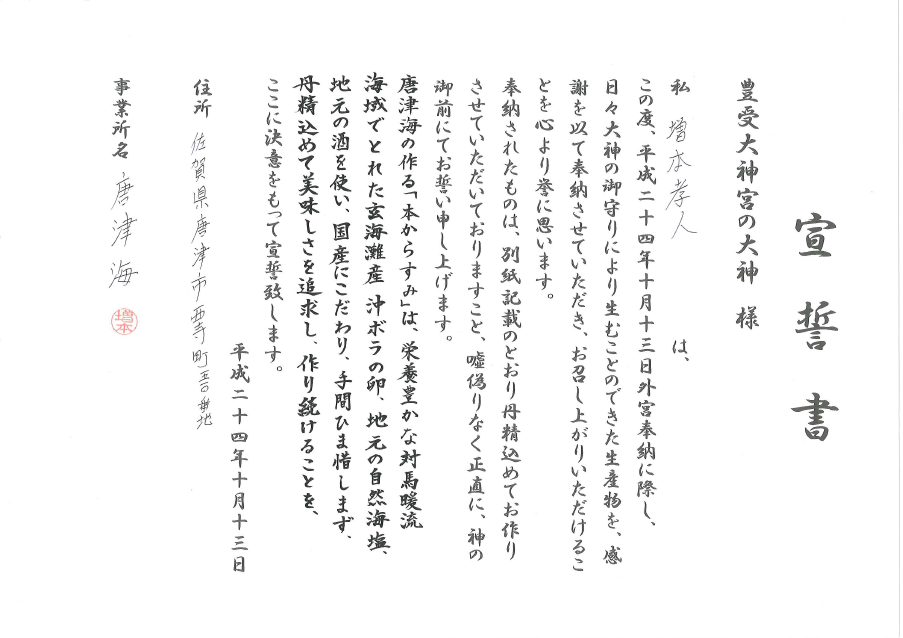 宣誓書
豊受大神宮の大神　様
私　増本孝人　は、
この度、平成二十四年十月十三日外宮奉納に際し、
日々大神の御守りにより生むことのできた生産物を、感
謝を以て奉納させていただき、お召し上がりいただけるこ
とを心より誉に思います。
奉納されたものは、別紙記載のとおり丹精込めてお作り
させていただいておりますこと、嘘偽りなく正直に、神の
御前にてお誓い申し上げます。
唐津海の作る「本からすみ」は、栄養豊かな対馬暖流
海域でとれた玄海灘産 沖ボラの卵、地元の自然海塩、
地元の酒を使い、国産にこだわり、手間ひま惜しまず、
丹精込めて美味しさを追求し、作り続けることを、
ここに決意をもって宣誓致します。
平成二十四年十月十三日
住所　佐賀県唐津市西寺町番地
事業所名　唐津海
増本